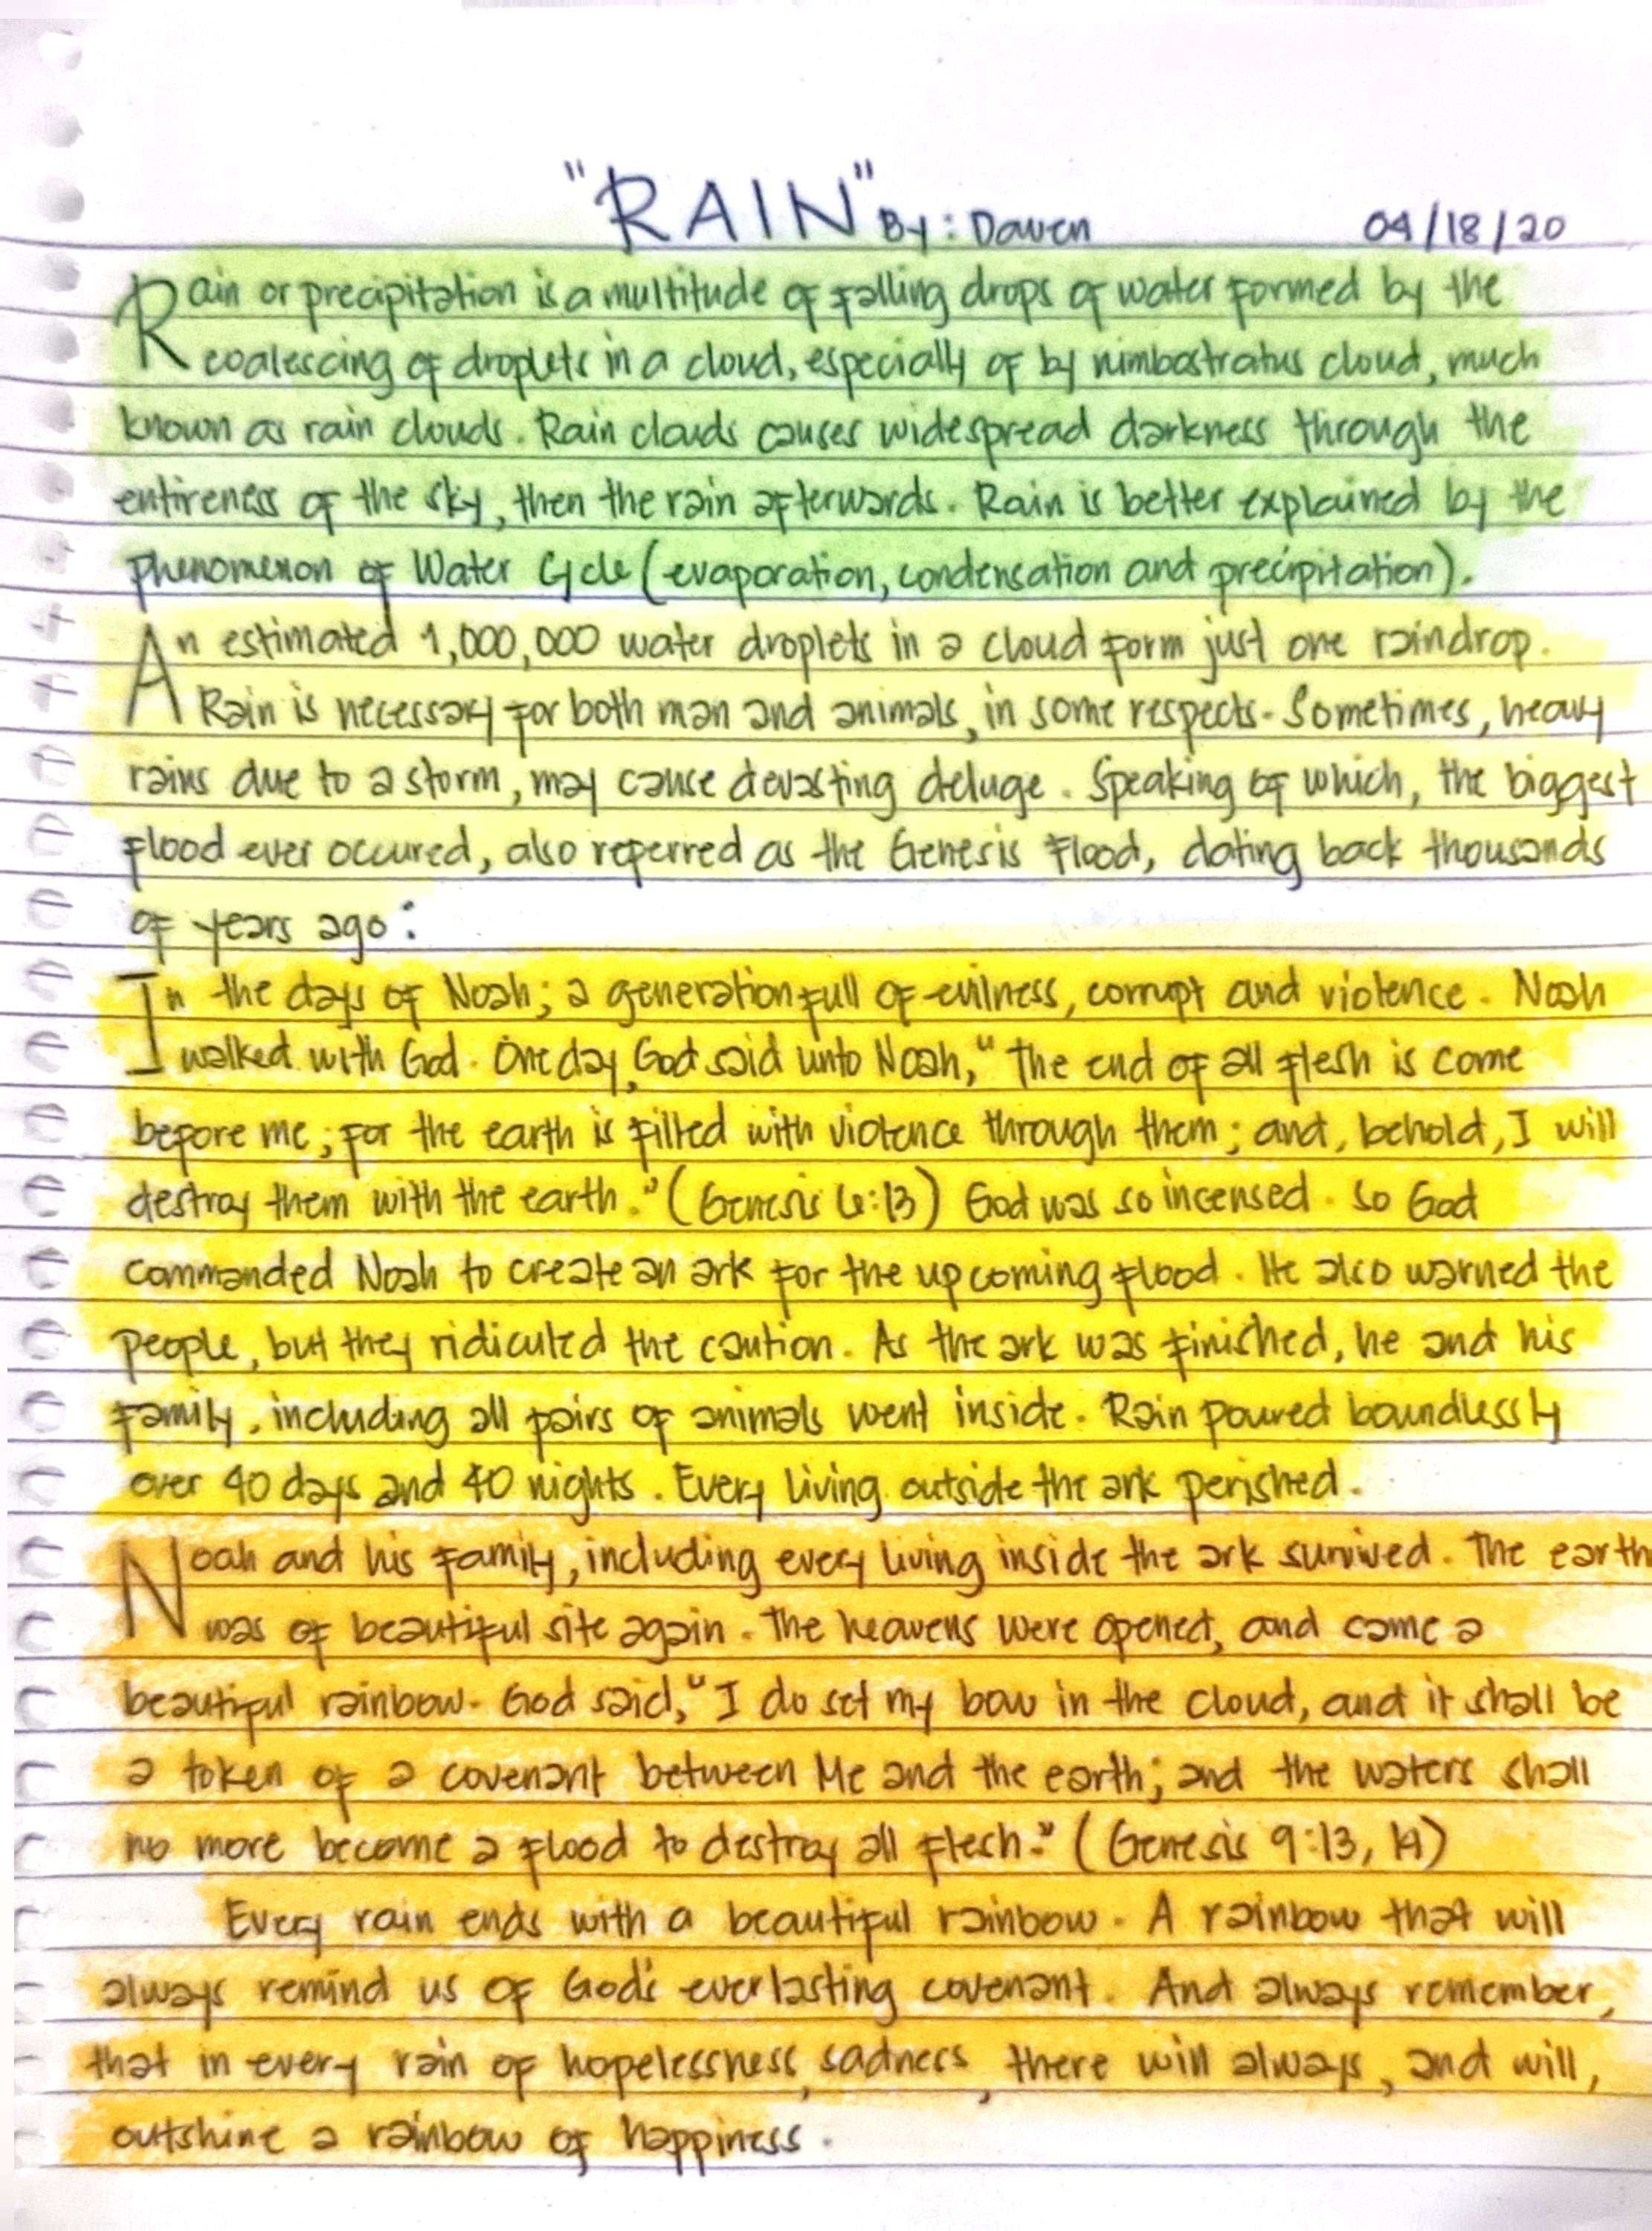 "RAIN" By: Dawen 04/18/20
Rain or precipitation is a multitude of falling drops of water formed by the
coalescing of droplets in a cloud, especially of by nimbostratus cloud, much
known as rain clouds. Rain clouds causes widespread darkness through the
entireness of the sky, then the rain afterwards. Rain is better explained by the
phenomenon of Water Cycle (evaporation, condensation and precipitation).
An estimated 1,000,000 water droplets in a cloud form just one raindrop.
Rain is necessary for both man and animals, in some respects. Sometimes, heavy
rains due to a storm, may cause devasting deluge. Speaking of which, the biggest
flood ever occured, also referred as the Genesis Flood, dating back thousands
of years ago:
In the days of Noah; a generation full of evilness, corrupt and violence. Noah
walked with God. One day, God said unto Noah, "The end of all flesh is come
before me; for the earth is filled with violence through them; and, behold, I will
destroy them with the earth." (Genesis 6:13) God was so incensed. So God
commanded Noah to create an ark for the upcoming flood. He also warned the
people, but they ridiculed the caution. As the ark was finished, he and his
family, including all pairs of animals went inside. Rain poured boundlessly
over 40 days and 40 nights. Every living outside the ark perished.
Noah and his family, including every living inside the ark survived. The earth
was of beautiful site again. The heavens were opened, and came a
beautiful rainbow. God said, "I do set my bow in the cloud, and it shall be
a token of a covenant between Me and the earth; and the waters shall
no more become a flood to destroy all flesh." (Genesis 9:13, 14)
Every rain ends with a beautiful rainbow. A rainbow that will
always remind us of God's everlasting covenant. And always remember,
that in every rain of hopelessness, sadness, there will always, and will,
outshine a rainbow of happiness.